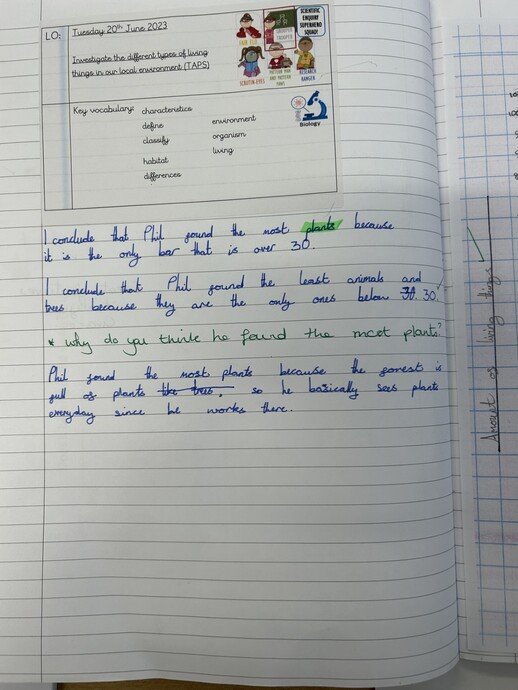 LO:
Tuesday 20th June 2023
Investigate the different types of living
things in our local environment (TAPS)
SCIENTIFIC
ENQUIRY
SUPERHERO
SQUAD!
FAIR FLO
GROUPER
TROOPER
SCRUTIN-EYES
PATTERN MAN
AND PATTERN
PAWS
RESEARCH
RANGER
Key vocabulary:
characteristics
define
classify
habitat
differences
environment
organism
living
Biology
I conclude that Phil found the most plants because
it is the only bar that is over 30.
I conclude that Phil found the least animals and
trees because they are the only ones below 30. 30.
* Why do you think he found the most plants?
Phil found the most plants because the forest is
full of plants like trees, so he basically sees plants
everyday since he works there.
Amount of living things